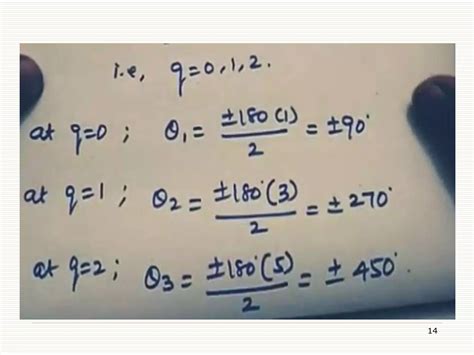 i.e, q=0,1,2.
at q=0 ; θ₁ = ±180(1)/2 = ±90°
at q=1 ; θ₂ = ±180°(3)/2 = ±270°
at q=2 ; θ₃ = ±180°(5)/2 = ± 450°.
14